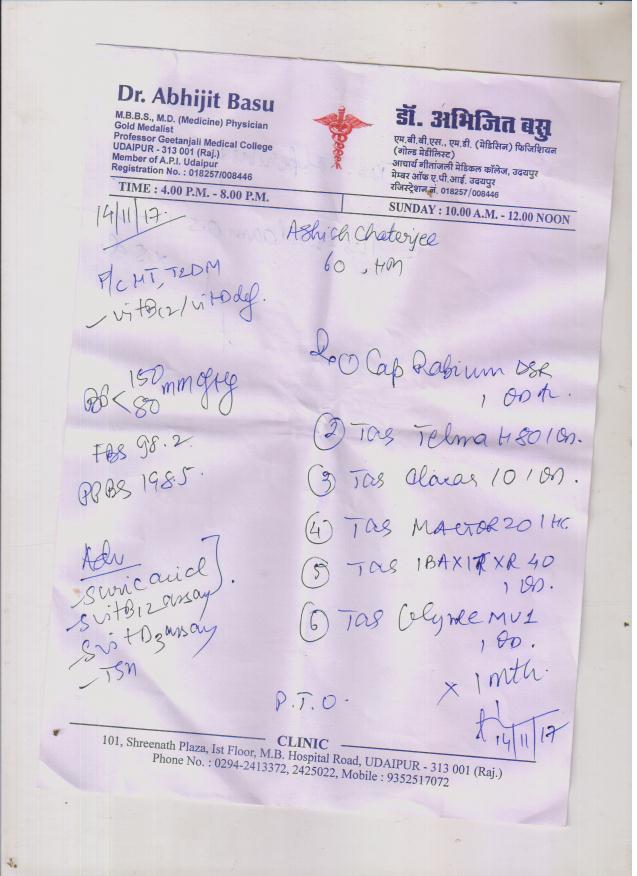 Dr. Abhijit Basu
M.B.B.S., M.D. (Medicine) Physician
Gold Medalist
Professor Geetanjali Medical College
UDAIPUR - 313 001 (Raj.)
Member of A.P.I. Udaipur
Registration No. : 018257/008446
TIME : 4.00 P.M. - 8.00 P.M.
डॉ. अभिजित बसु
एम.बी.बी.एस., एम.डी. (मेडिसिन) फिजिशियन
(गोल्ड मेडीलिस्ट)
आचार्य गीतांजली मेडिकल कॉलेज, उदयपुर
मेम्बर ऑफ ए.पी.आई. उदयपुर
रजिस्ट्रेशन नं. 018257/008446
SUNDAY : 10.00 A.M. - 12.00 NOON
14/11/17.
Ashish Chaterjee
60
HT, T2DM
vit B12/vit D def.
BP < 150/80 mm of Hg
FBS 98.2
PPBS 198.5
Adv
S vit B12 assay
S vit D3 assay
TSH
① Cap Rabium DSR
1 OD
② Tab Telma H 80 1 OD.
③ Tab 10 1 OD.
④ Tab 20 1 HS
⑤ Tab XR 40
1 OD.
⑥ Tab MV1
1 OD.
x 1 mth.
14/11/17
P.T.O.
CLINIC
101, Shreenath Plaza, Ist Floor, M.B. Hospital Road, UDAIPUR - 313 001 (Raj.)
Phone No. : 0294-2413372, 2425022, Mobile : 9352517072